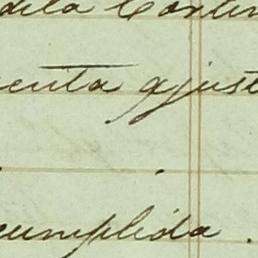 dita Contin
enta ajust
cumplida.